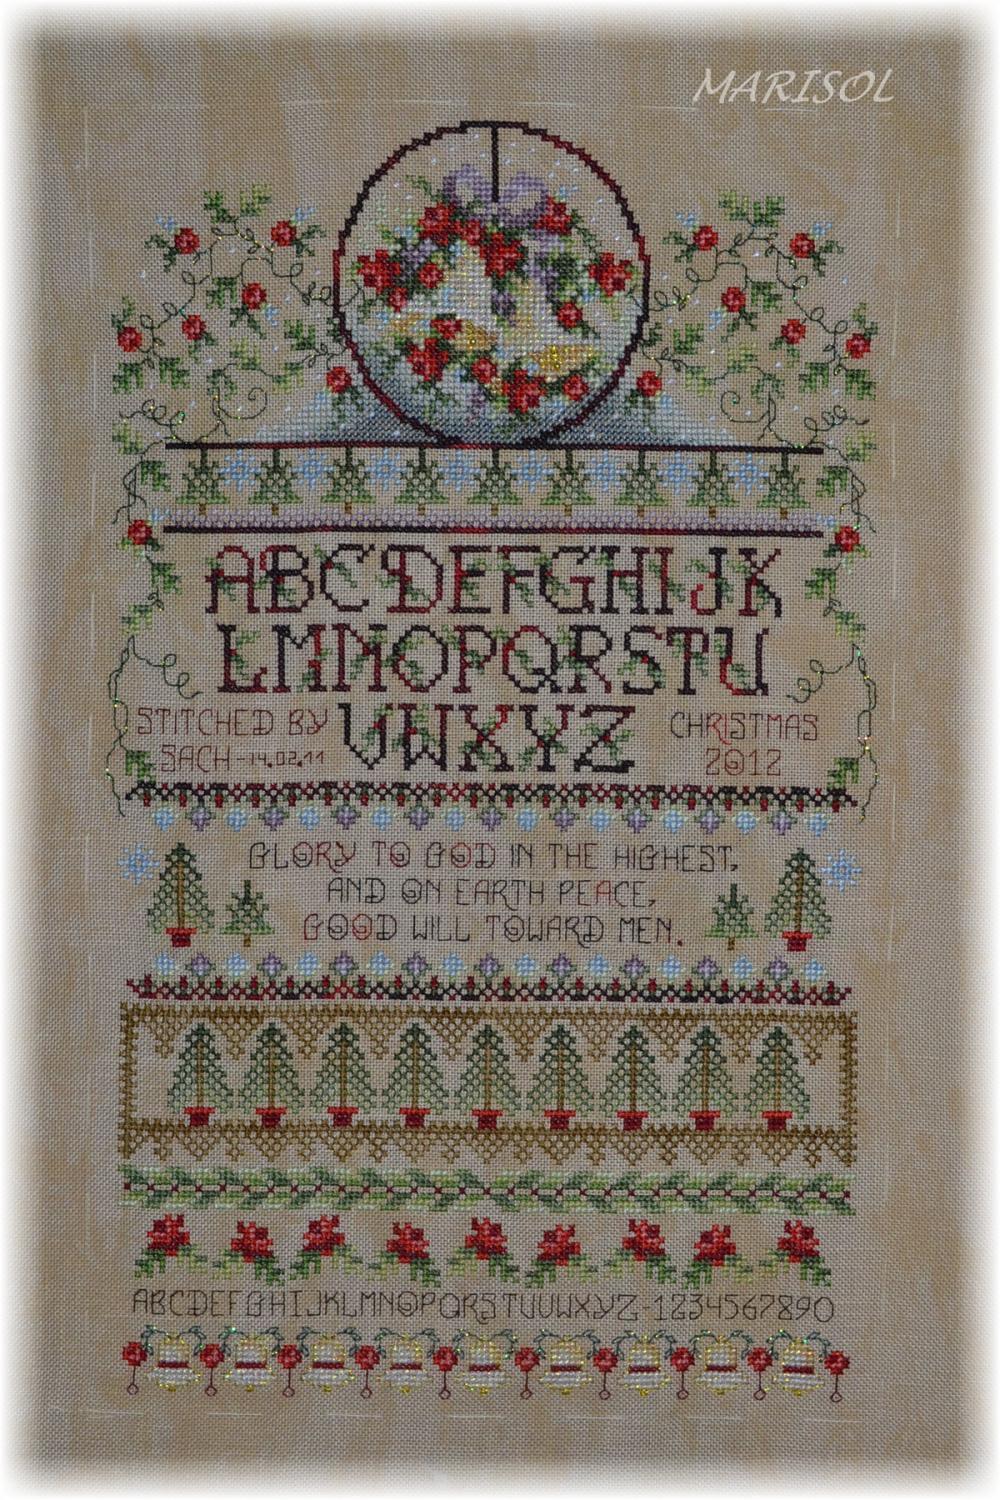 MARISOL
ABCDEFGHIJK
LMNOPQRSTU
VWXYZ
STITCHED BY
SACH-14.02.11
CHRISTMAS
2012
GLORY TO GOD IN THE HIGHEST,
AND ON EARTH PEACE,
GOOD WILL TOWARD MEN.
ABCDEFGHIJKLMNOPQRSTUVWXYZ-1234567890